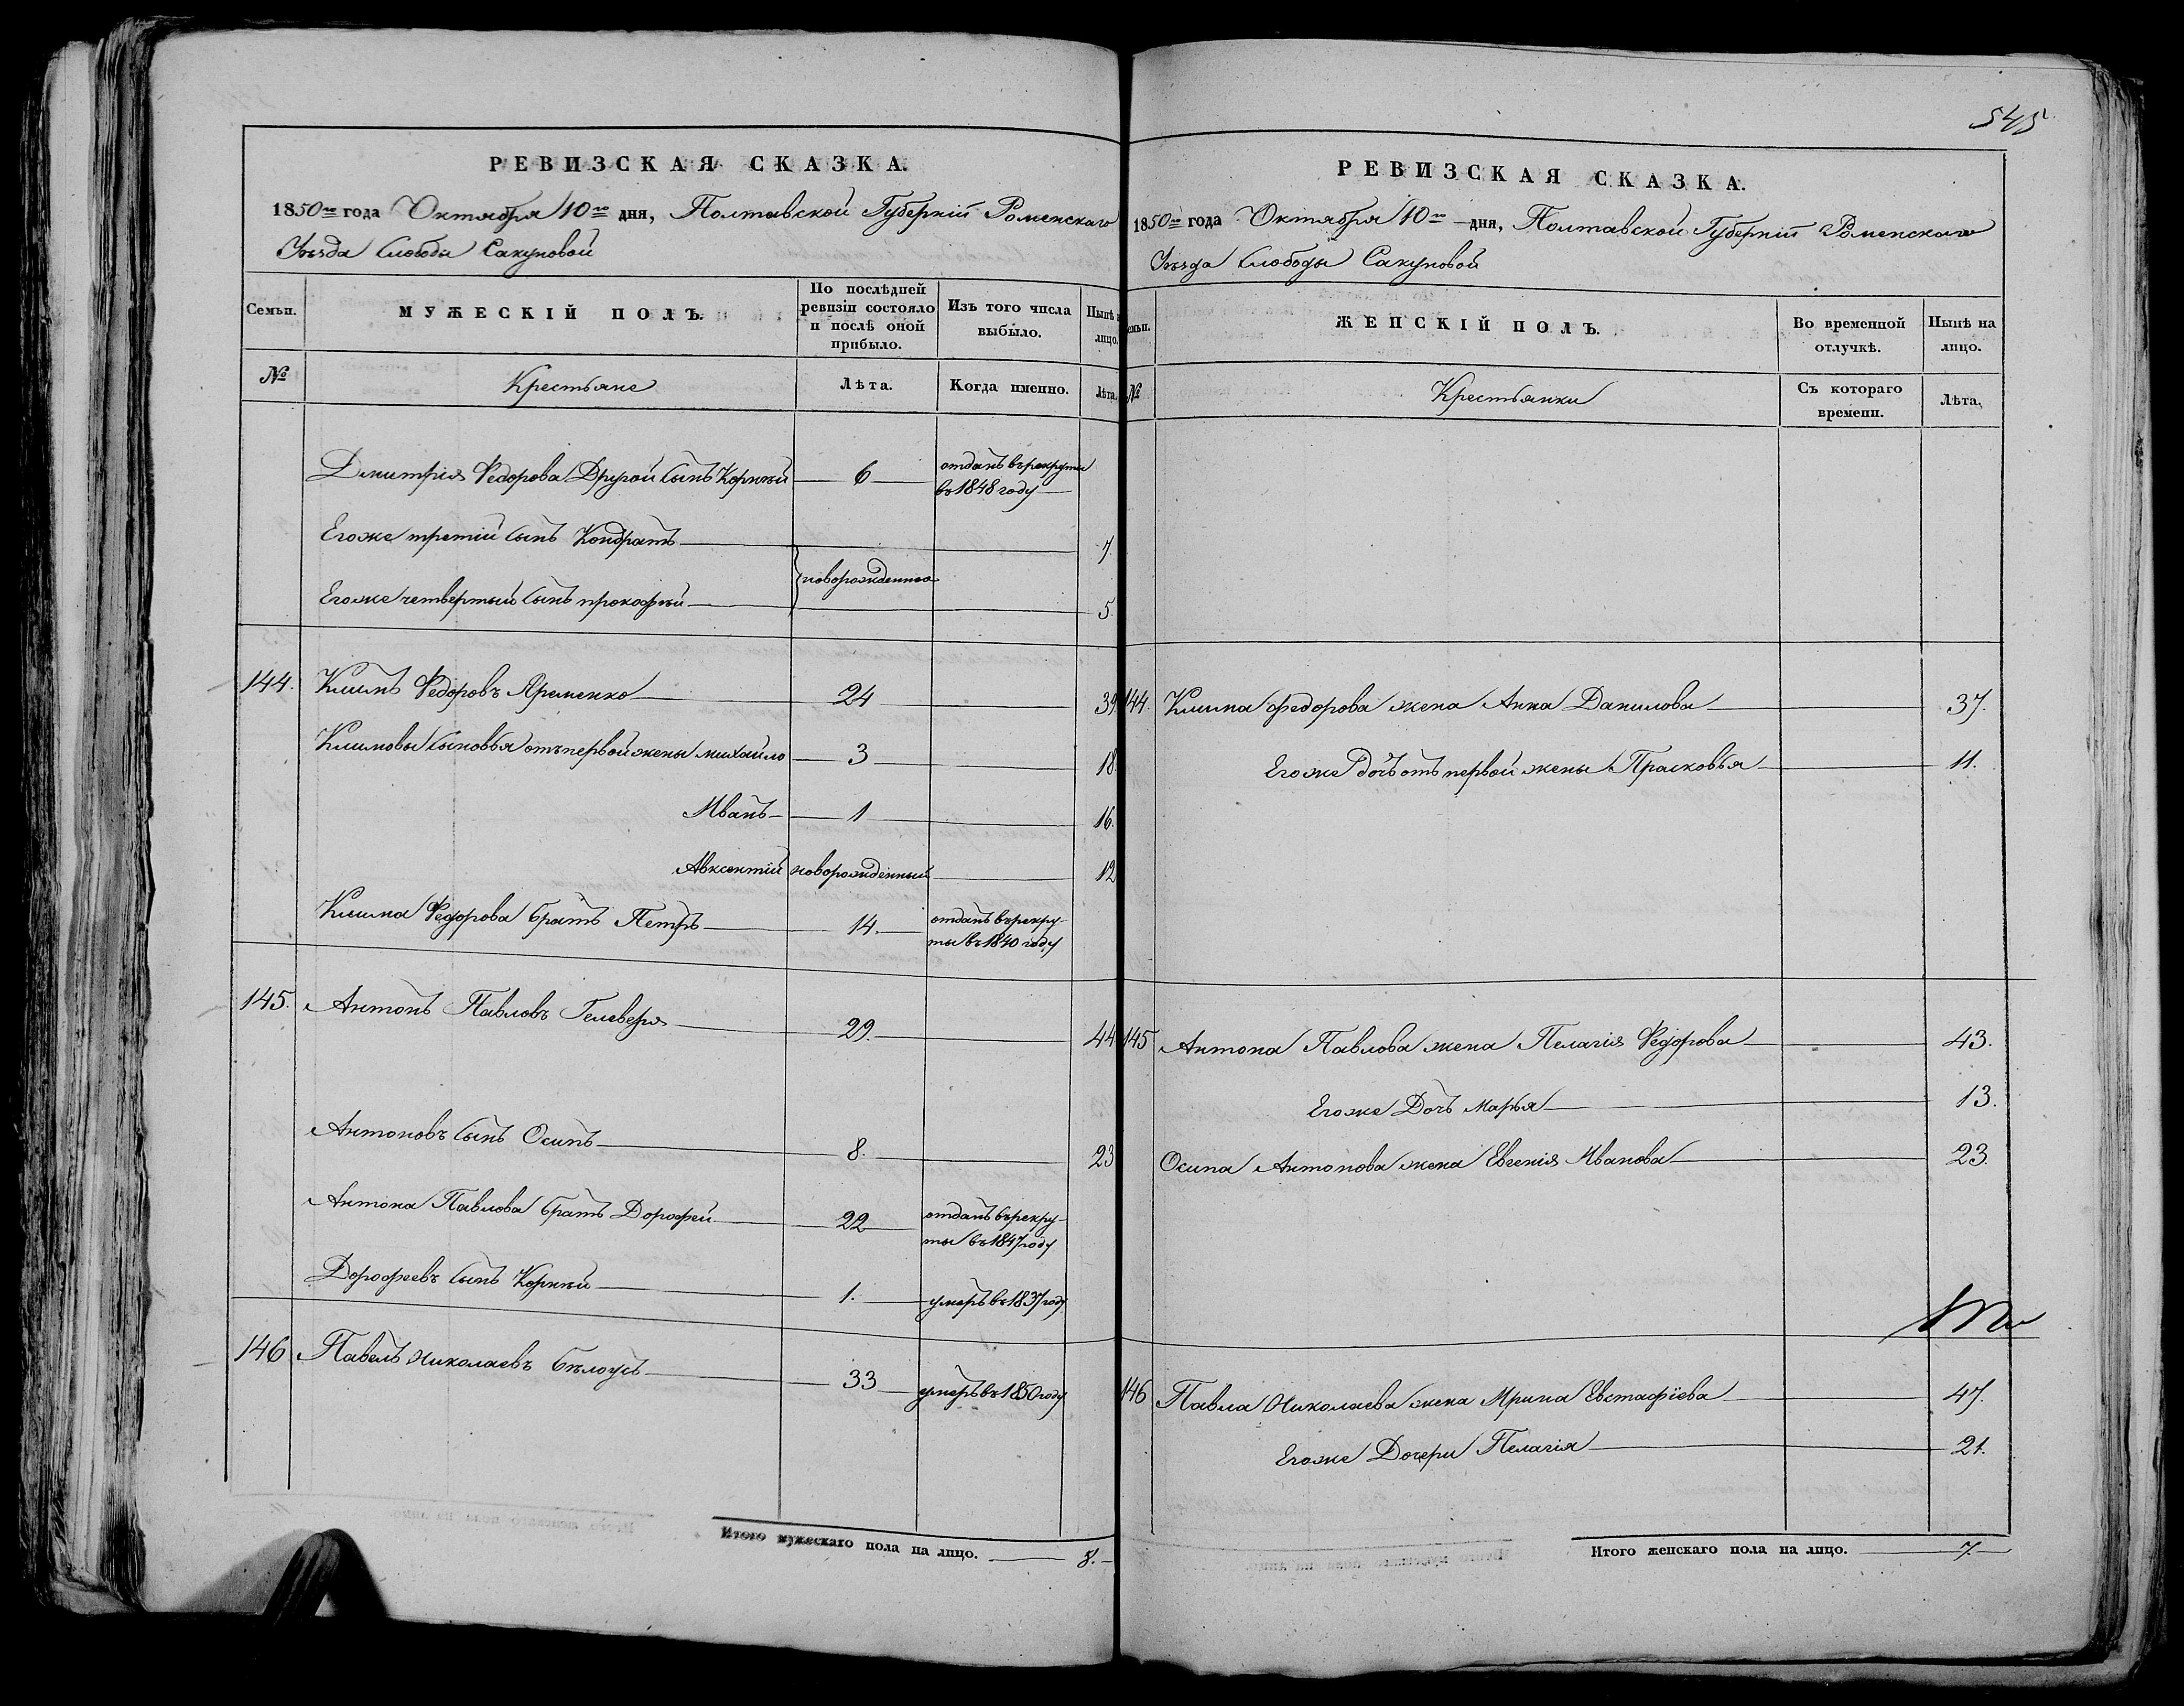 РЕВИЗСКАЯ СКАЗКА.
1850го года Октября 10го дня, Полтавской Губерніи Роменскаго
Уѣзда Слободы Сакуновой
Семьи.
МУЖЕСКІЙ ПОЛЪ.
По послѣдней
ревизіи состояло
и послѣ оной
прибыло.
Изъ того числа
выбыло.
Нынѣ на
лицо.
№
Крестьяне
Лѣта.
Когда именно.
Лѣта.
Дмитрія Федорова Другой Сынъ Корнѣй 6 отданъ въ рекруты
въ 1848 году
Егоже третій Сынъ Кондратъ 7.
новорожденные
Егоже четвертый Сынъ прокофѣй 5.
144. Климъ Федоровъ Яременко 24 39.
Климовы Сыновья отъ первой жены михайло 3 18.
Иванъ 1 16.
Авксентій новорожденный 12
Клима Федорова братъ Петръ 14. отданъ въ рекру-
ты въ 1840 году
145. Антонъ Павловъ Гелеверя 29. 44
Антоновъ Сынъ Осипъ 8. 23
Антона Павлова братъ Дорофей 22 отданъ въ рекру-
ты въ 1847 году
Дорофеевъ Сынъ Корнѣй 1. умеръ въ 1837 году
146 Павелъ Николаевъ Бѣлоусъ 33 умеръ въ 1850 году
Итого мужескаго пола на лицо. 8.
545
РЕВИЗСКАЯ СКАЗКА.
1850го года Октября 10го дня, Полтавской Губерніи Роменскаго
Уѣзда Слободы Сакуновой
Семьи.
ЖЕНСКІЙ ПОЛЪ.
Во временной
отлучкѣ.
Нынѣ на
лицо.
№
Крестьянки
Съ котораго
времени.
Лѣта.
144. Клима Федорова жена Анна Данилова 37.
Егоже дочь отъ первой жены Прасковья 11.
145 Антона Павлова жена Пелагія Федорова 43.
Егоже Дочь Марья 13.
Осипа Антонова жена Евгенія Иванова 23.
146 Павла Николаева жена Ирина Евстафіева 47.
Егоже Дочери Пелагія 21.
Итого женскаго пола на лицо. 7.